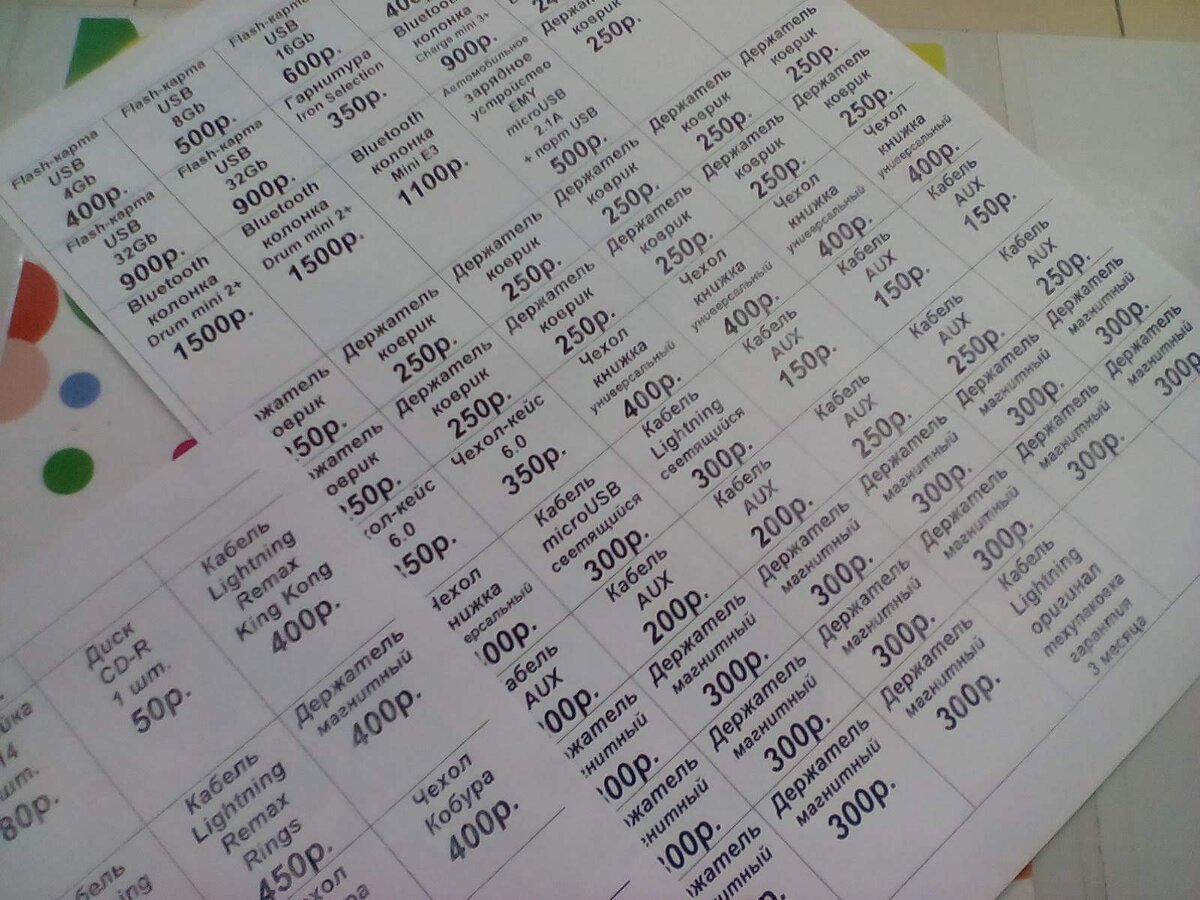 Flash-карта
USB
4Gb
400р.
Flash-карта
USB
8Gb
500р.
Flash-карта
USB
16Gb
600р.
Flash-карта
USB
32Gb
900р.
Flash-карта
USB
32Gb
900р.
Гарнитура
Iron Selection
350р.
Bluetooth
колонка
Charge mini 3+
900р.
Держатель
коврик
250р.
Bluetooth
колонка
Drum mini 2+
1500р.
Bluetooth
колонка
Drum mini 2+
1500р.
Bluetooth
колонка
Mini E3
1100р.
Автомобильное
зарядное
устройство
EMY
microUSB
2.1A
+ порт USB
500р.
жатель
оврик
50р.
Держатель
коврик
250р.
Держатель
коврик
250р.
Держатель
коврик
250р.
Держатель
коврик
250р.
Держатель
коврик
250р.
жатель
оврик
50р.
Держатель
коврик
250р.
Держатель
коврик
250р.
Держатель
коврик
250р.
Держатель
коврик
250р.
Держатель
коврик
250р.
ол-кейс
6.0
50р.
Чехол-кейс
6.0
350р.
Чехол
книжка
универсальный
400р.
Чехол
книжка
универсальный
400р.
Чехол
книжка
универсальный
400р.
Чехол
книжка
универсальный
400р.
Чехол
нижка
ерсальный
00р.
Кабель
microUSB
светящийся
300р.
Кабель
Lightning
светящийся
300р.
Кабель
AUX
150р.
Кабель
AUX
150р.
Кабель
AUX
150р.
абель
AUX
00р.
Кабель
AUX
200р.
Кабель
AUX
200р.
Кабель
AUX
250р.
Кабель
AUX
250р.
Кабель
AUX
250р.
жатель
нитный
00р.
Держатель
магнитный
300р.
Держатель
магнитный
300р.
Держатель
магнитный
300р.
Держатель
магнитный
300р.
Держатель
магнитный
300р.
жатель
нитный
00р.
Держатель
магнитный
300р.
Держатель
магнитный
300р.
Держатель
магнитный
300р.
Держатель
магнитный
300р.
Держатель
магнитный
300р.
жатель
нитный
Держатель
магнитный
300р.
Держатель
магнитный
300р.
Кабель
Lightning
оригинал
техупаковка
гарантия
3 месяца
йка
14
шт.
80р.
Диск
CD-R
1 шт.
50р.
Кабель
Lightning
Remax
King Kong
400р.
бель
ing
Кабель
Lightning
Remax
Rings
450р.
Держатель
магнитный
400р.
хол
ра
Чехол
Кобура
400р.